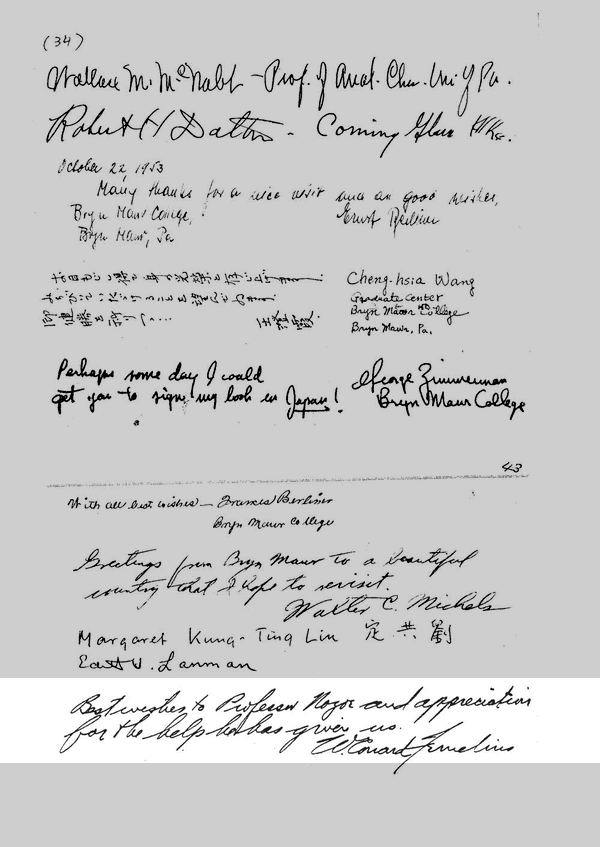 (34)
Wallace M. McNabb - Prof. of Anal. Chem. Uni. of Pa.
Robert H Dalton - Corning Glass Wks.
October 22, 1953
Many thanks for a nice visit and all good wishes,
Bryn Mawr College, Ernst Berliner
Bryn Mawr, Pa
Cheng-hsia Wang
Graduate Center
Bryn Mawr College
Bryn Mawr, Pa.
王
Perhaps some day I could
get you to sign my book in Japan!
George Zimmerman
Bryn Mawr College
43
With all best wishes — Frances Berliner
Bryn Mawr College
Greetings from Bryn Mawr to a beautiful
country that I hope to revisit.
Walter C. Michels
Margaret Kung-Ting Liu 定共劉
Lanman
Best wishes to Professor Nozoe and appreciation
for the help he has given us.
W. Conard Fernelius